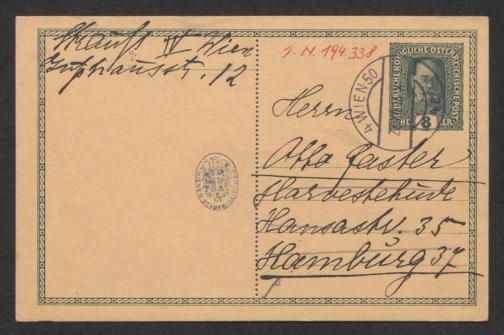 Strauß IV Wien
Gußhausstr. 12
I. N. 194.338
KAISERLICHE KÖNIGLICHE ÖSTERREICHISCHE POST
8 HELLER
4 WIEN 50
Herrn
Otto Taster
Harvestehude
Hansastr. 35
Hamburg 37